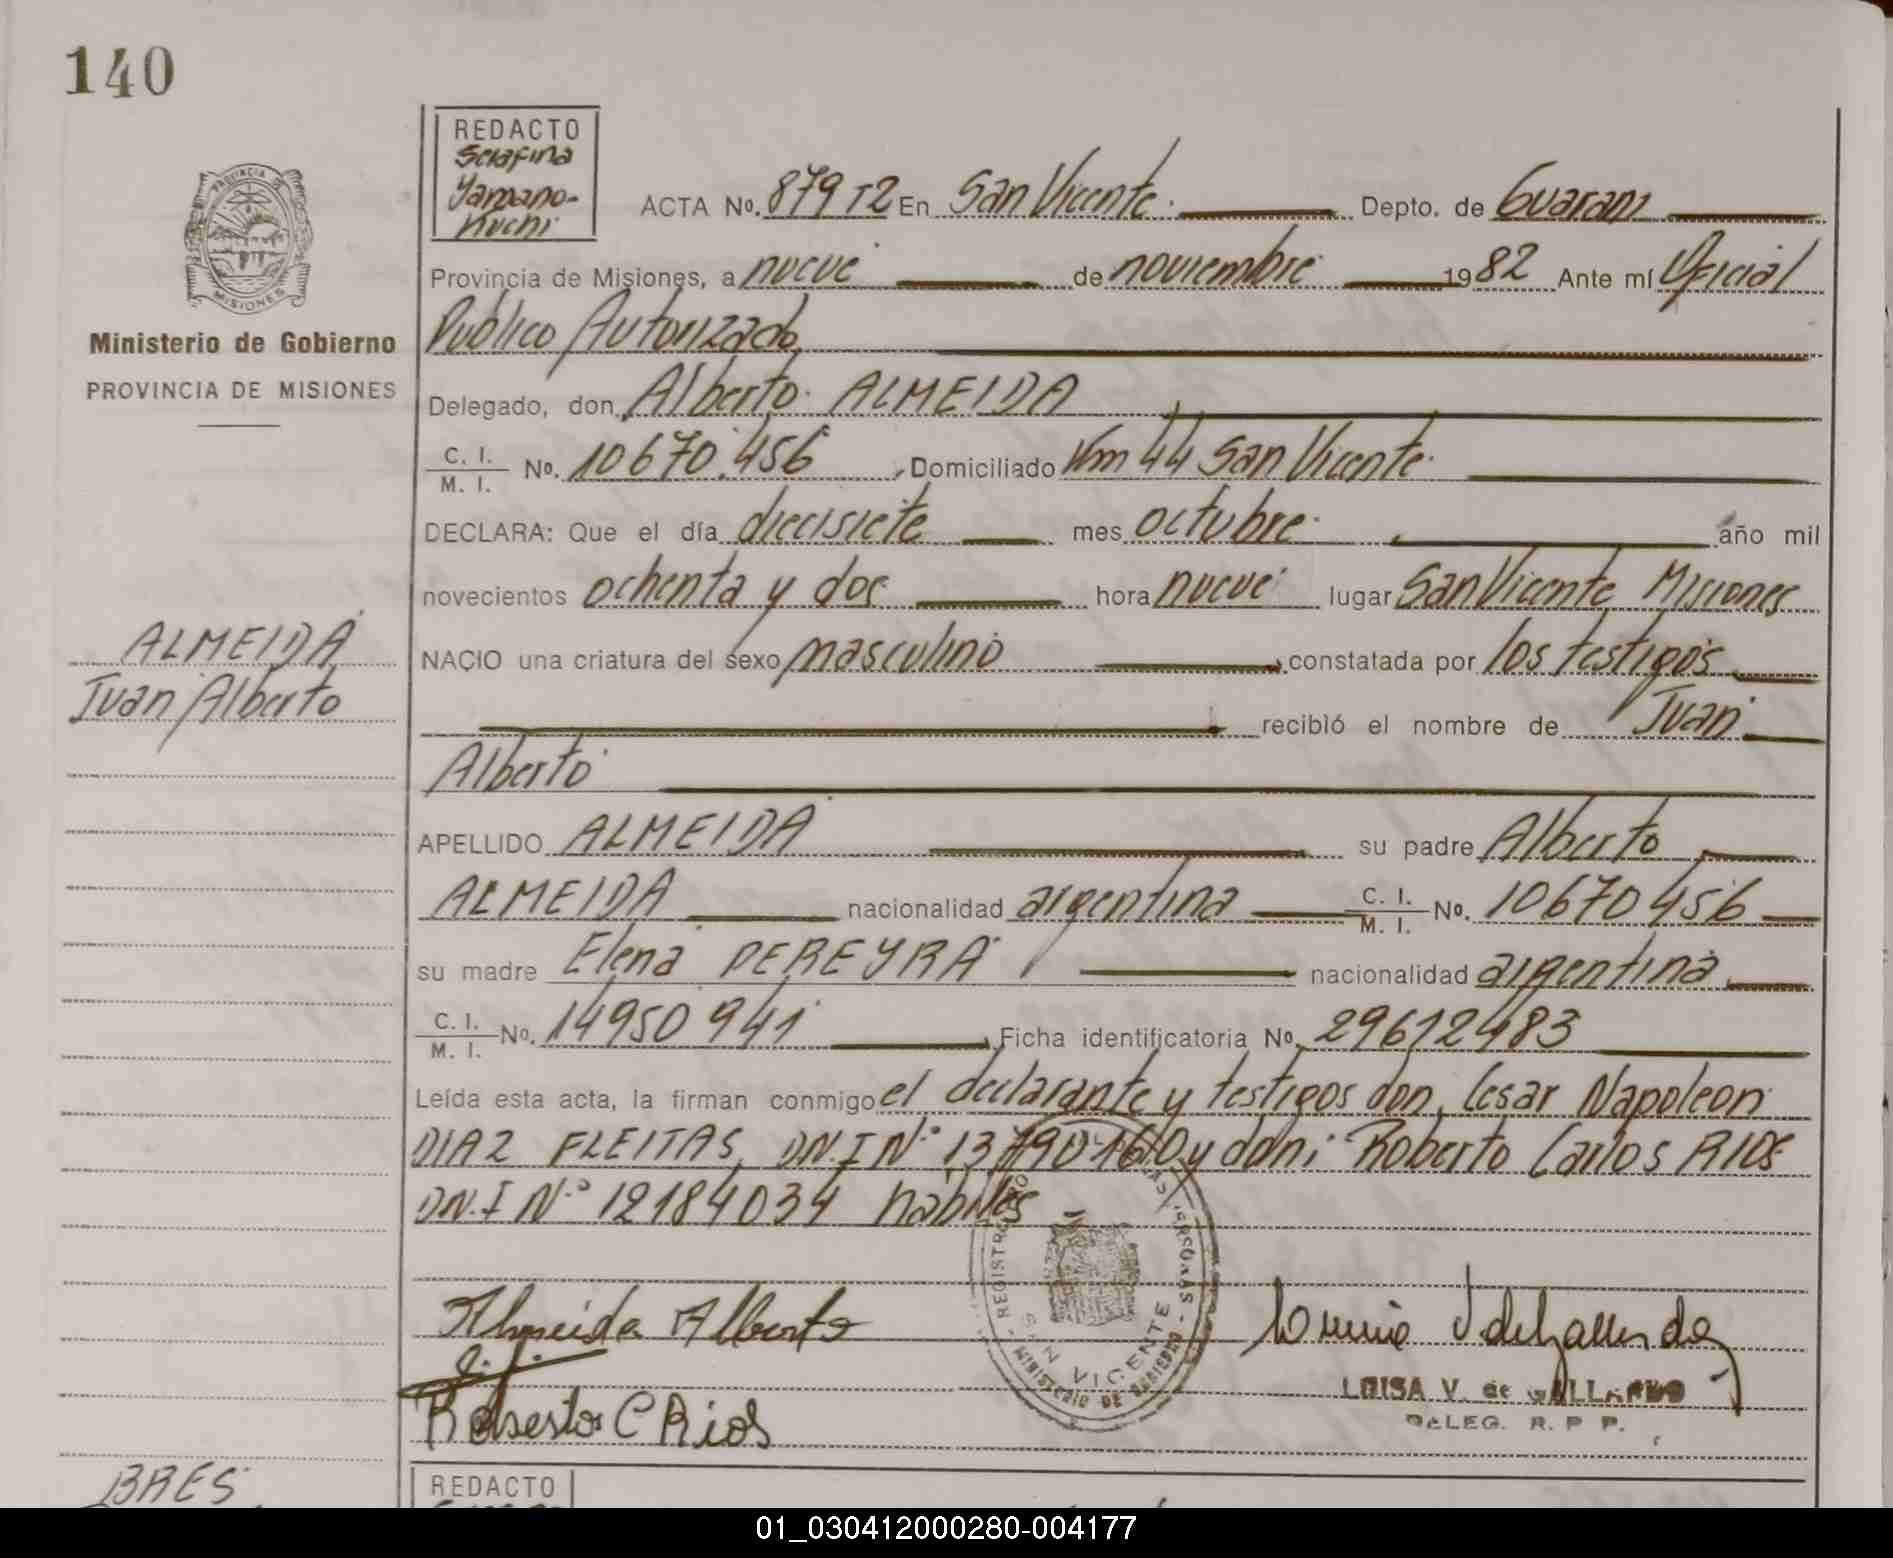 140
REDACTO
Serafina
Yamano-
kuchi
ACTA No. 879 T2 En San Vicente Depto. de Guarani
Provincia de Misiones, a nueve de noviembre 1982 Ante mí Oficial
Publico Autorizado
Delegado, don Alberto ALMEIDA
C. I.
M. I. No. 10670.456, Domiciliado Km 44 San Vicente
DECLARA: Que el día diecisiete mes octubre año mil
novecientos ochenta y dos hora nueve lugar San Vicente Misiones
NACIO una criatura del sexo masculino constatada por los testigos
recibió el nombre de Juan
Alberto
APELLIDO ALMEIDA su padre Alberto
ALMEIDA nacionalidad argentina C. I.
M. I. No. 10670456
su madre Elena PEREYRA nacionalidad argentina
C. I.
M. I. No. 14950941, Ficha identificatoria No. 29612483
Leída esta acta, la firman conmigo el declarante y testigos don, Cesar Napoleon
DIAZ FLEITAS, DN.I Nº 13790160 y don: Roberto Carlos RIOS
DN.I Nº 12184034 habiles
Almeida Alberto
Roberto C Rios
SAN VICENTE
MINISTERIO DE GOBIERNO
LUISA V. de GALLARDO
DELEG. R. P P.
PROVINCIA DE
MISIONES
Ministerio de Gobierno
PROVINCIA DE MISIONES
ALMEIDA
Juan Alberto
BRES
REDACTO
01_030412000280-004177